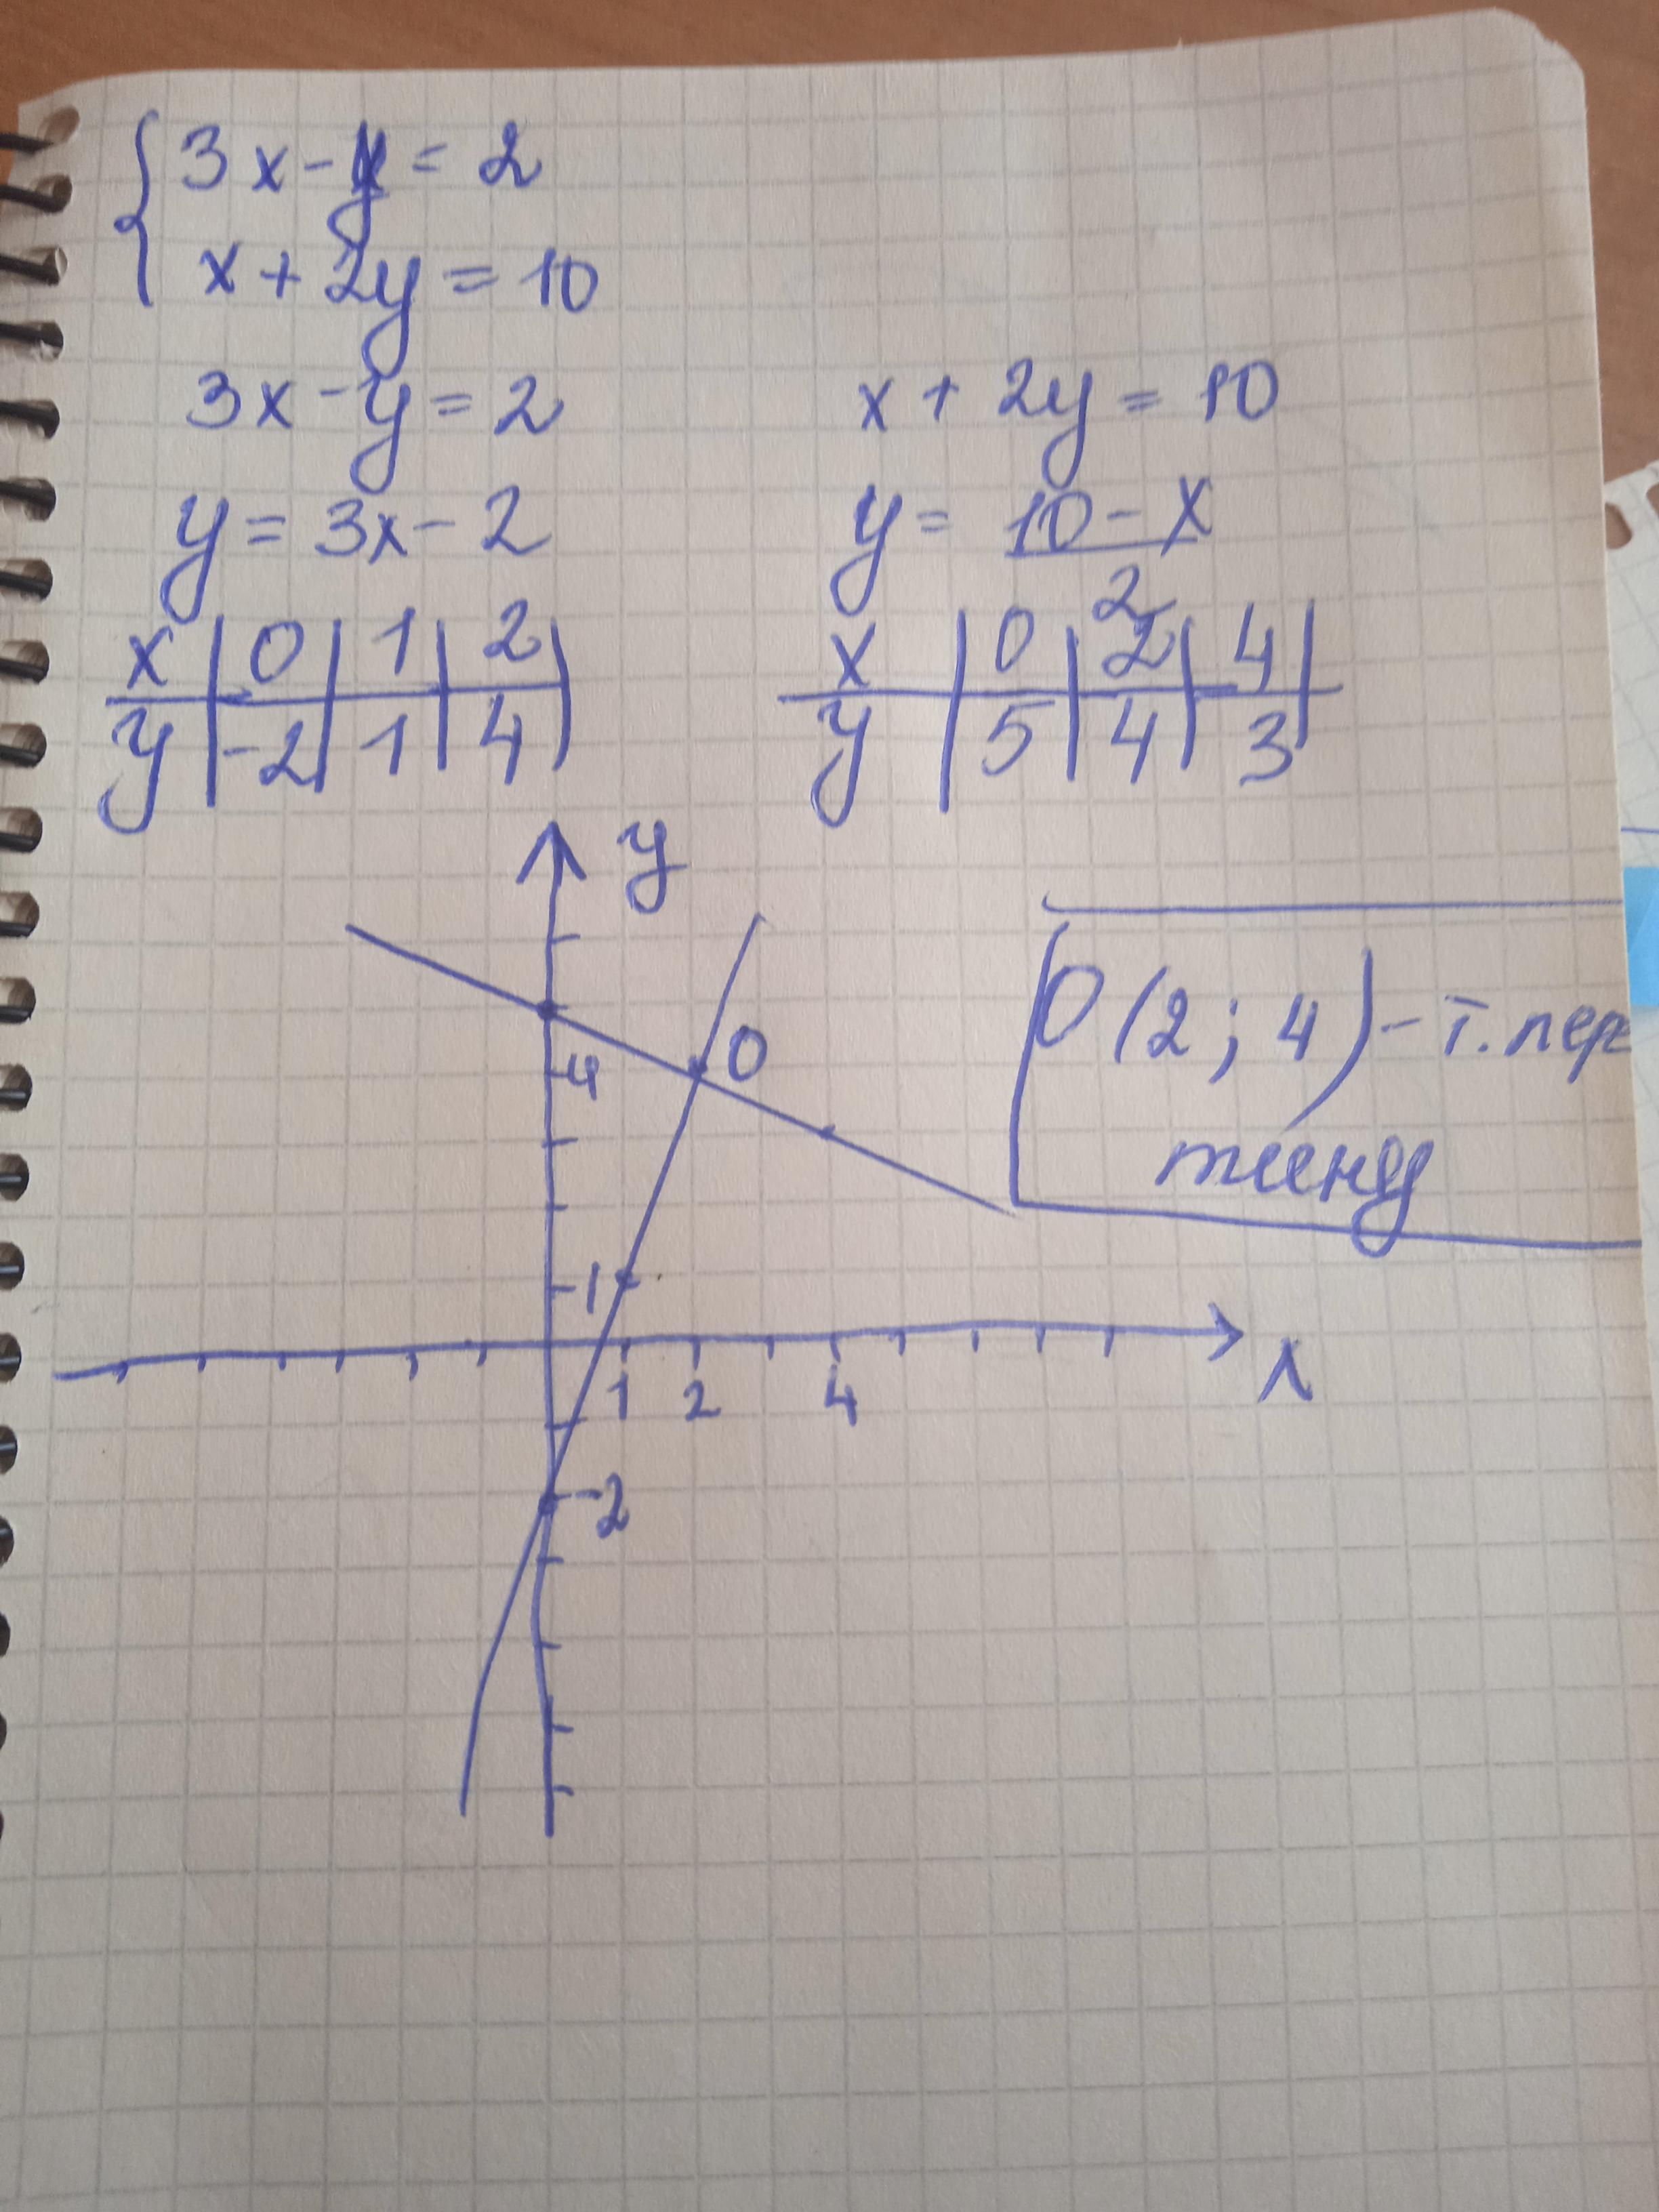 3x - y = 2
x + 2y = 10
3x - y = 2
x + 2y = 10
y = 3x - 2
y = 10 - x
2
x | 0 | 1 | 2 |
y | -2 | 1 | 4 |
x | 0 | 2 | 4 |
y | 5 | 4 | 3 |
y
O
4
1
1 2 4
x
-2
O (2; 4) - т. пере
тину